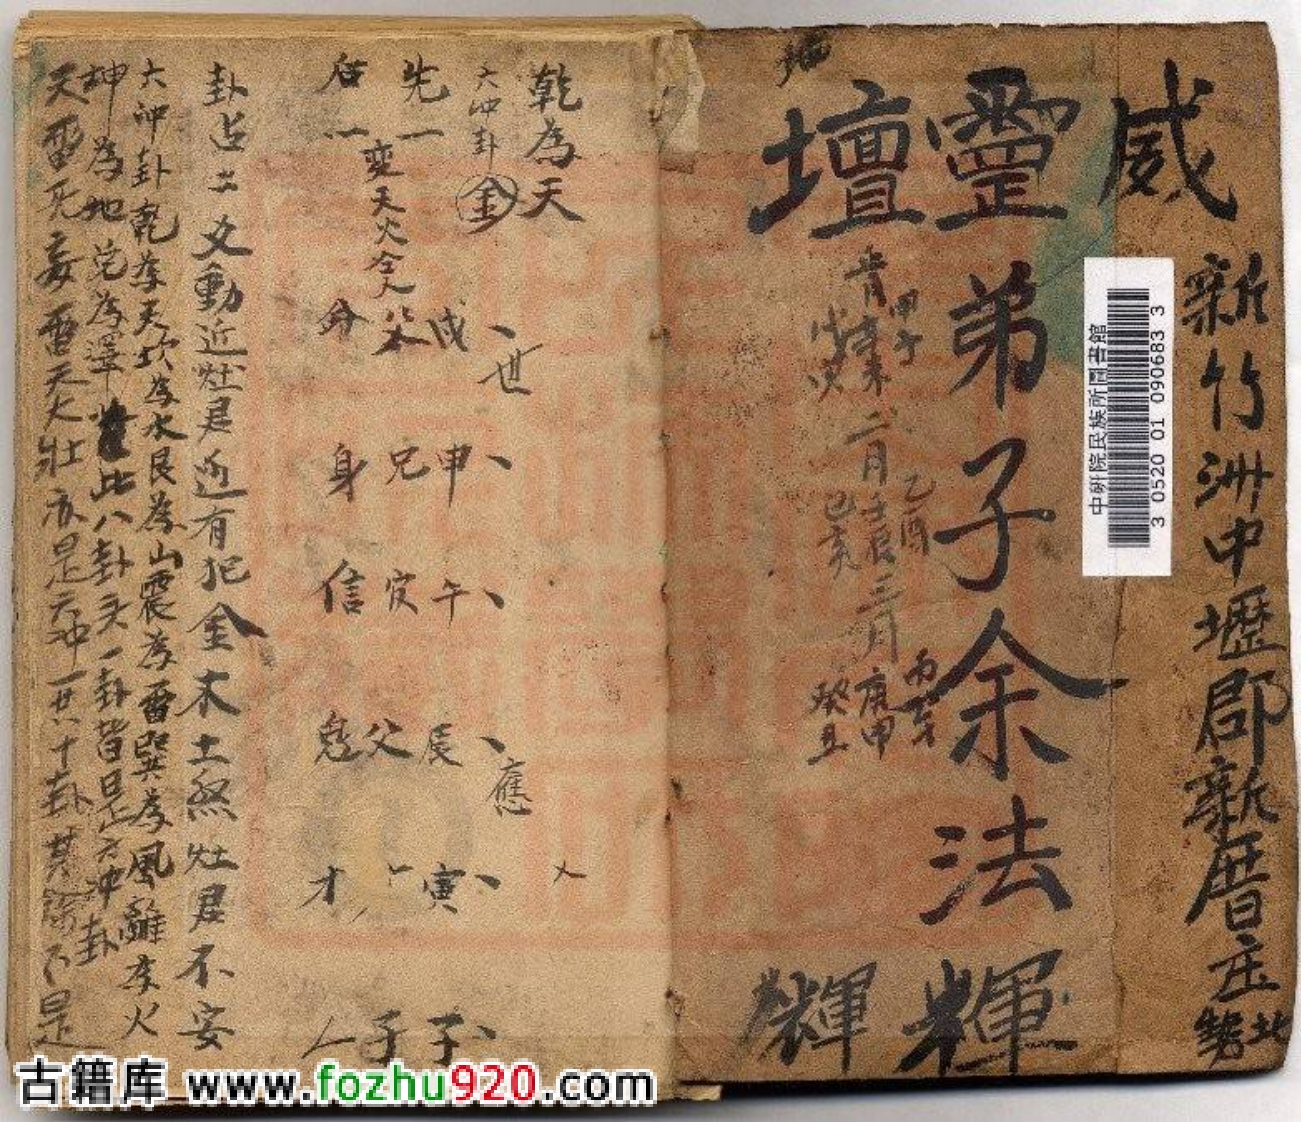 新竹洲中壢郡新厝庄
威
靈弟子余法輝
壇
輝
甲子
乙酉
二月壬辰三月庚申
戊
己亥
癸丑
中研院民族所圖書館
3 0520 01 090683 3
乾為天
六沖卦 金
戌、世
申、
午、
辰、應
寅、
子、
先一
兄
父
子
變天火
后一
身
信
才
卦占二爻動近灶君近有犯金木土煞灶君不安
六沖卦乾為天坎為水艮為山震為雷巽為風離為火
坤為地兌為澤此八卦頭一卦皆是六沖卦
天雷无妄雷天大壯亦是六沖 共十卦其餘不是
古籍库 www.fozhu920.com